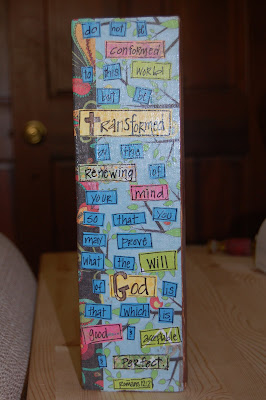 do not be
conformed
to this world
but be
Transformed
by the
Renewing of
your mind
so that you
may prove
what the will
of God is
that which is
good &
acceptable
& PERFECT.
Romans 12:2